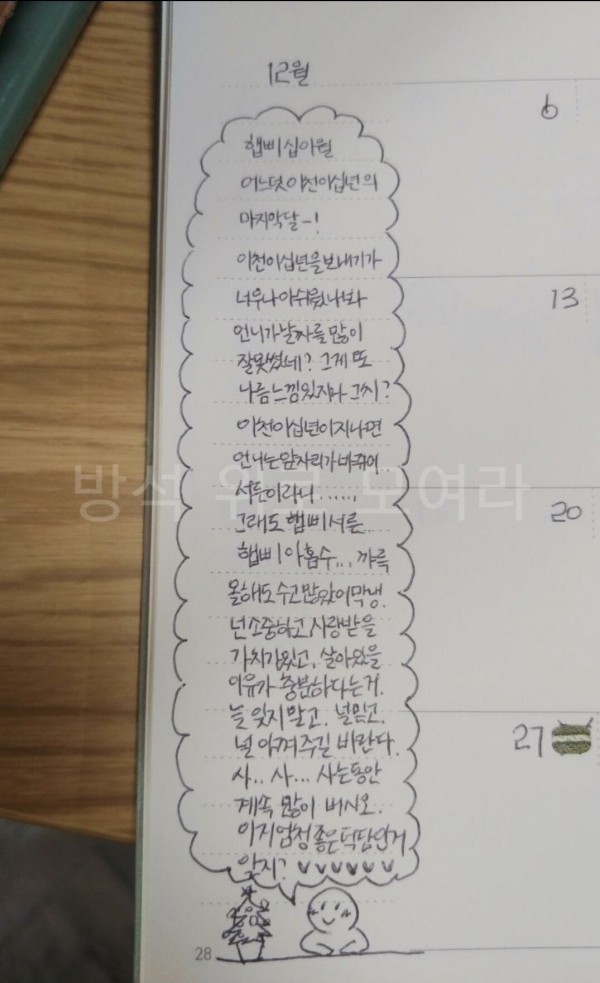 12월
햅삐 십이월
어느덧 이천이십년의
마지막달-!
이천이십년을 보내기가
너무나 아쉬웠나보다
언니가 날짜를 많이
잘못썼네? 그게 또
나름 느낌있지나 그치?
이천이십년이 지나면
언니는 앞자리가 바뀌어
서른이라니......
그래도 햅삐 서른
햅삐 아홉수... 꺄륵
올해도 수고많았어 막냉.
넌 소중하고, 사랑받을
가치가있고, 살아있을
이유가 충분하다는거.
늘 잊지말고. 널믿고.
널 아껴주길 바란다.
사.. 사... 사는동안
계속 많이 버시오.
이거 엄청 좋은 덕담인거
알지? ♥♥♥♥♥♥
28
6
13
20
27
방석 모여라